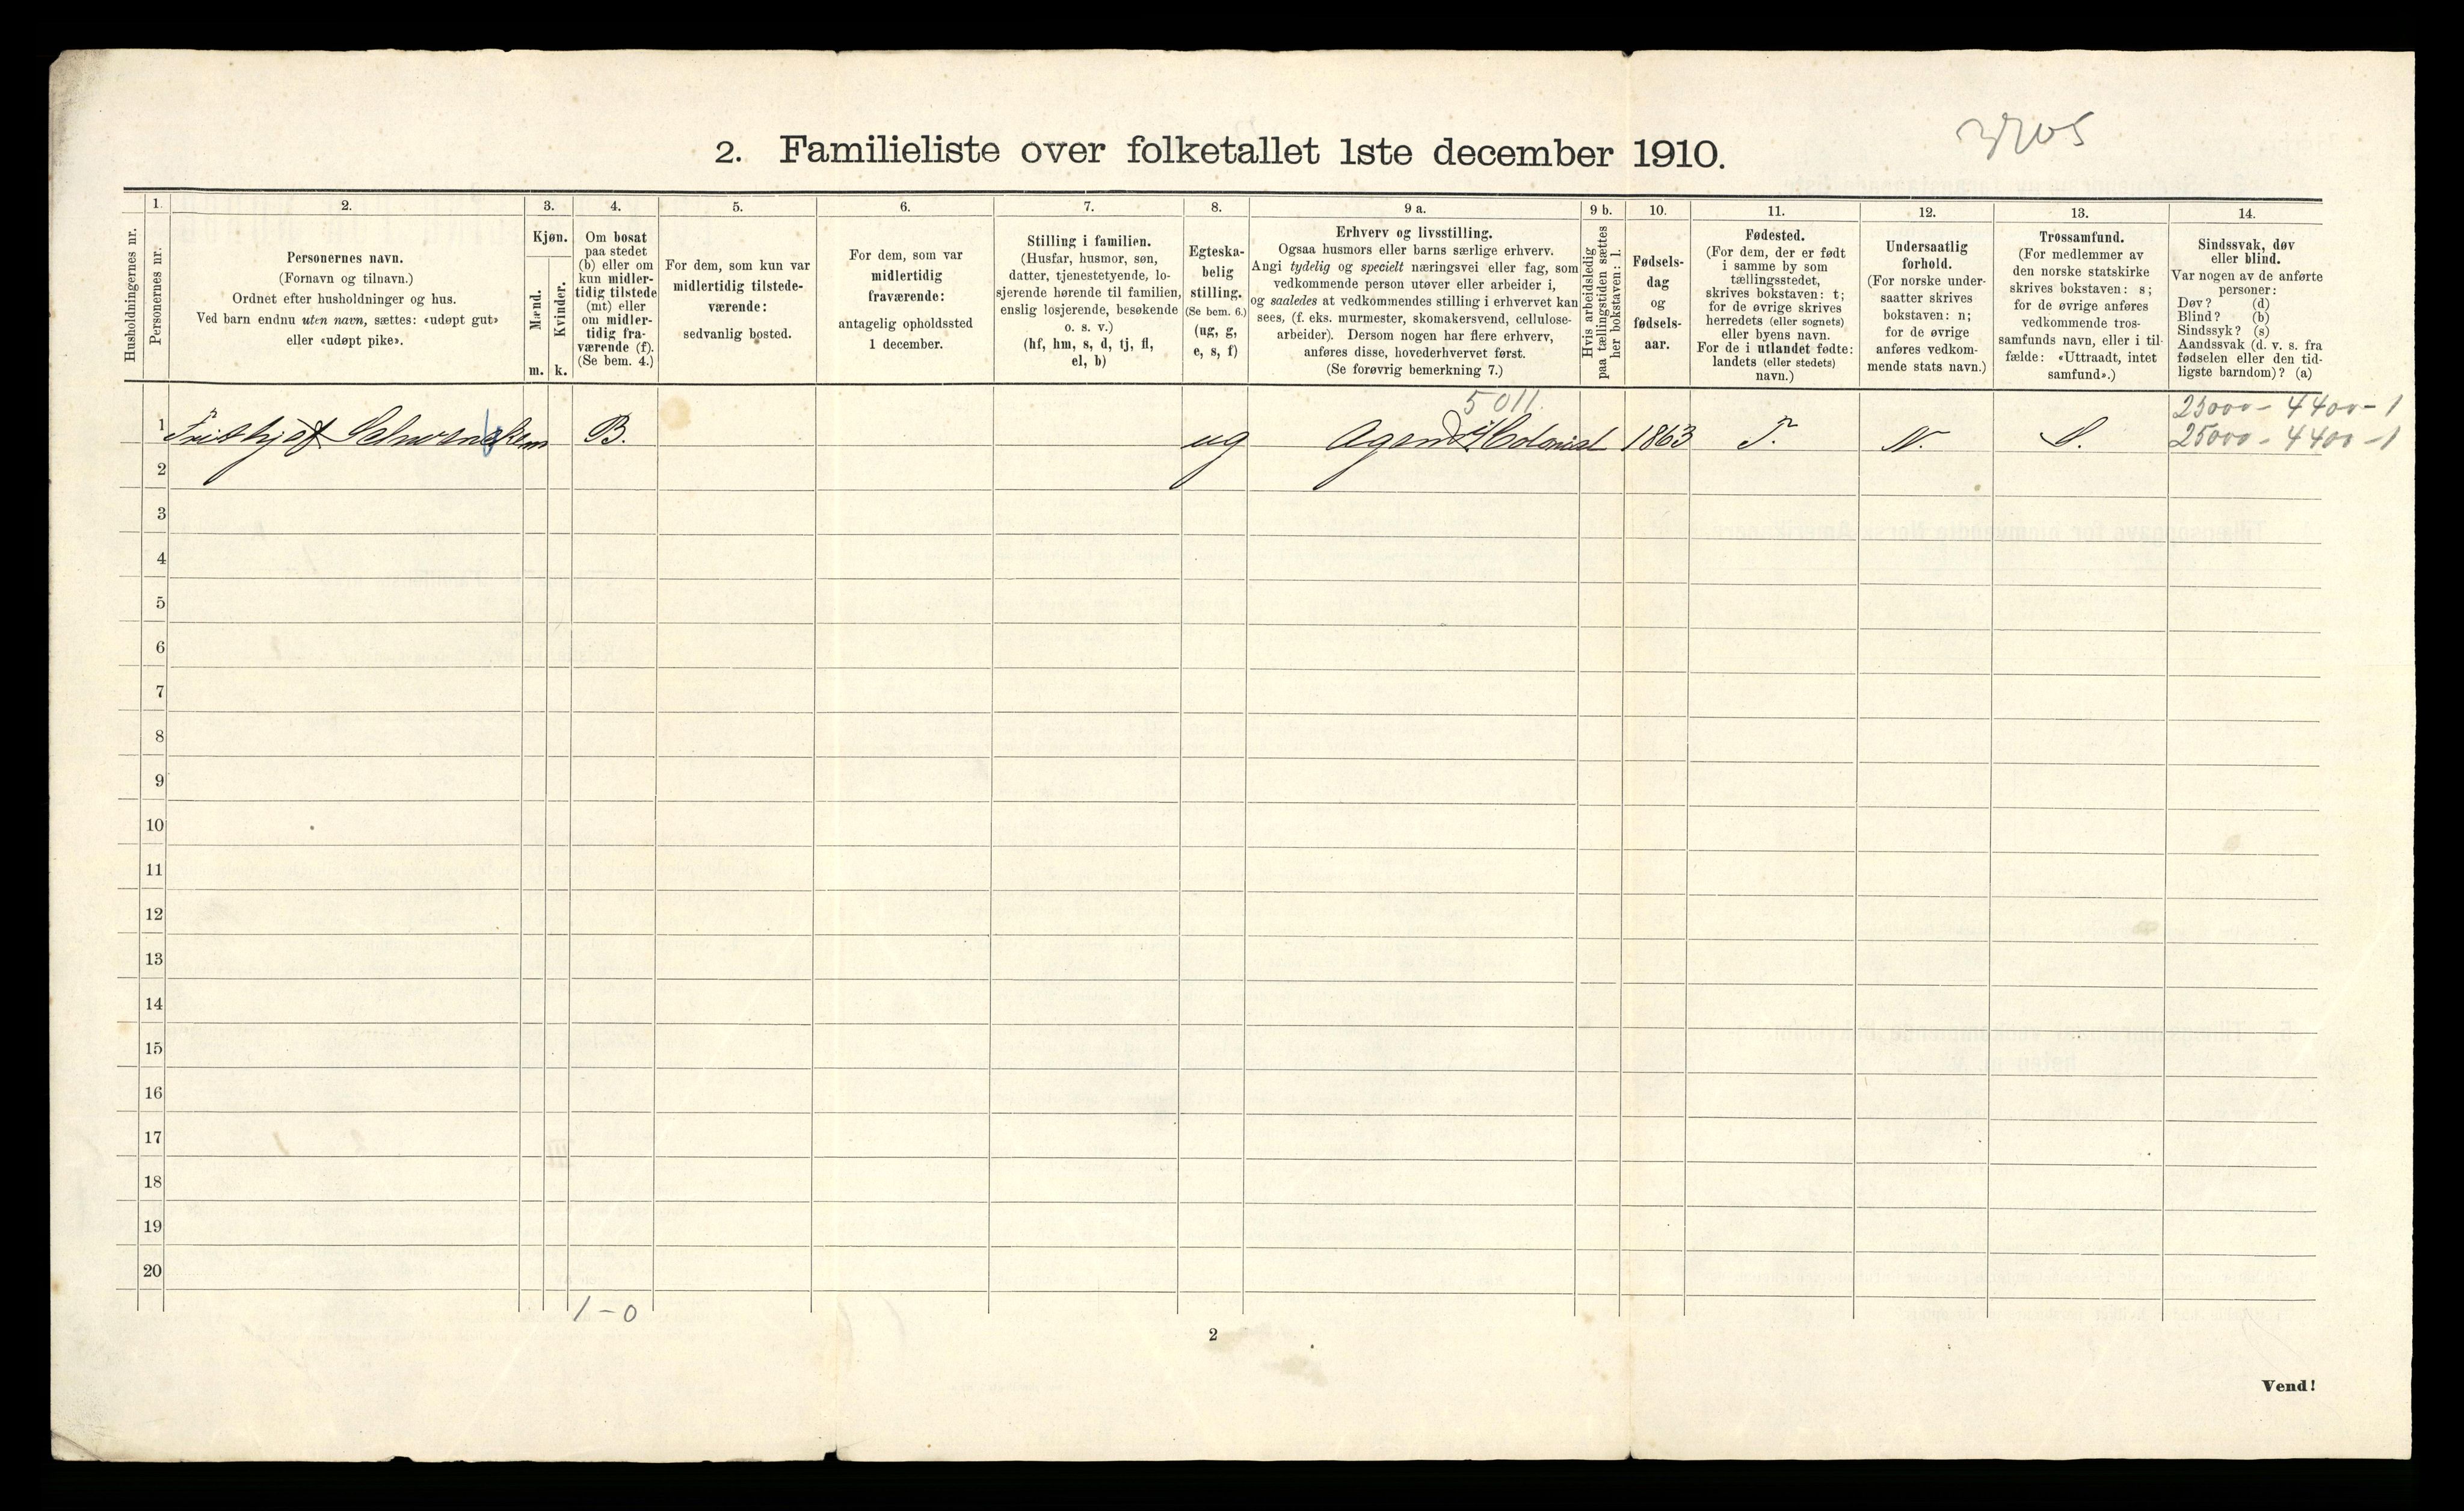 3705
2. Familieliste over folketallet 1ste december 1910.
Husholdningernes nr.
1. Personernes nr.
2.
Personernes navn.
(Fornavn og tilnavn.)
Ordnet efter husholdninger og hus.
Ved barn endnu uten navn, sættes: «udøpt gut»
eller «udøpt pike».
3.
Kjøn.
Mænd.
m.
Kvinder.
k.
4.
Om bosat
paa stedet
(b) eller om
kun midler-
tidig tilstede
(mt) eller
om midler-
tidig fra-
værende (f).
(Se bem. 4.)
5.
For dem, som kun var
midlertidig tilstede-
værende:
sedvanlig bosted.
6.
For dem, som var
midlertidig
fraværende:
antagelig opholdssted
1 december.
7.
Stilling i familien.
(Husfar, husmor, søn,
datter, tjenestetyende, lo-
sjerende hørende til familien,
enslig losjerende, besøkende
o. s. v.)
(hf, hm, s, d, tj, fl,
el, b)
8.
Egteska-
belig
stilling.
(Se bem. 6.)
(ug, g,
e, s, f)
9 a.
Erhverv og livsstilling.
Ogsaa husmors eller barns særlige erhverv.
Angi tydelig og specielt næringsvei eller fag, som
vedkommende person utøver eller arbeider i,
og saaledes at vedkommendes stilling i erhvervet kan
sees, (f. eks. murmester, skomakersvend, cellulose-
arbeider). Dersom nogen har flere erhverv,
anføres disse, hovederhvervet først.
(Se forøvrig bemerkning 7.)
9 b.
Hvis arbeidsledig
paa tællingstiden sættes
her bokstaven: l.
10.
Fødsels-
dag
og
fødsels-
aar.
11.
Fødested.
(For dem, der er født
i samme by som
tællingsstedet,
skrives bokstaven: t;
for de øvrige skrives
herredets (eller sognets)
eller byens navn.
For de i utlandet fødte:
landets (eller stedets)
navn.)
12.
Undersaatlig
forhold.
(For norske under-
saatter skrives
bokstaven: n;
for de øvrige
anføres vedkom-
mende stats navn.)
13.
Trossamfund.
(For medlemmer av
den norske statskirke
skrives bokstaven: s;
for de øvrige anføres
vedkommende tros-
samfunds navn, eller i til-
fælde: «Uttraadt, intet
samfund».)
14.
Sindssvak, døv
eller blind.
Var nogen av de anførte
personer:
Døv? (d)
Blind? (b)
Sindssyk? (s)
Aandssvak (d. v. s. fra
fødselen eller den tid-
ligste barndom)? (a)
5011. 25000 - 4400 - 1
1 Frithjof B. ug Agent i Colonial 1863 T. N. S. 25000 - 4400 - 1
2
3
4
5
6
7
8
9
10
11
12
13
14
15
16
17
18
19
20
1 - 0
2
Vend!